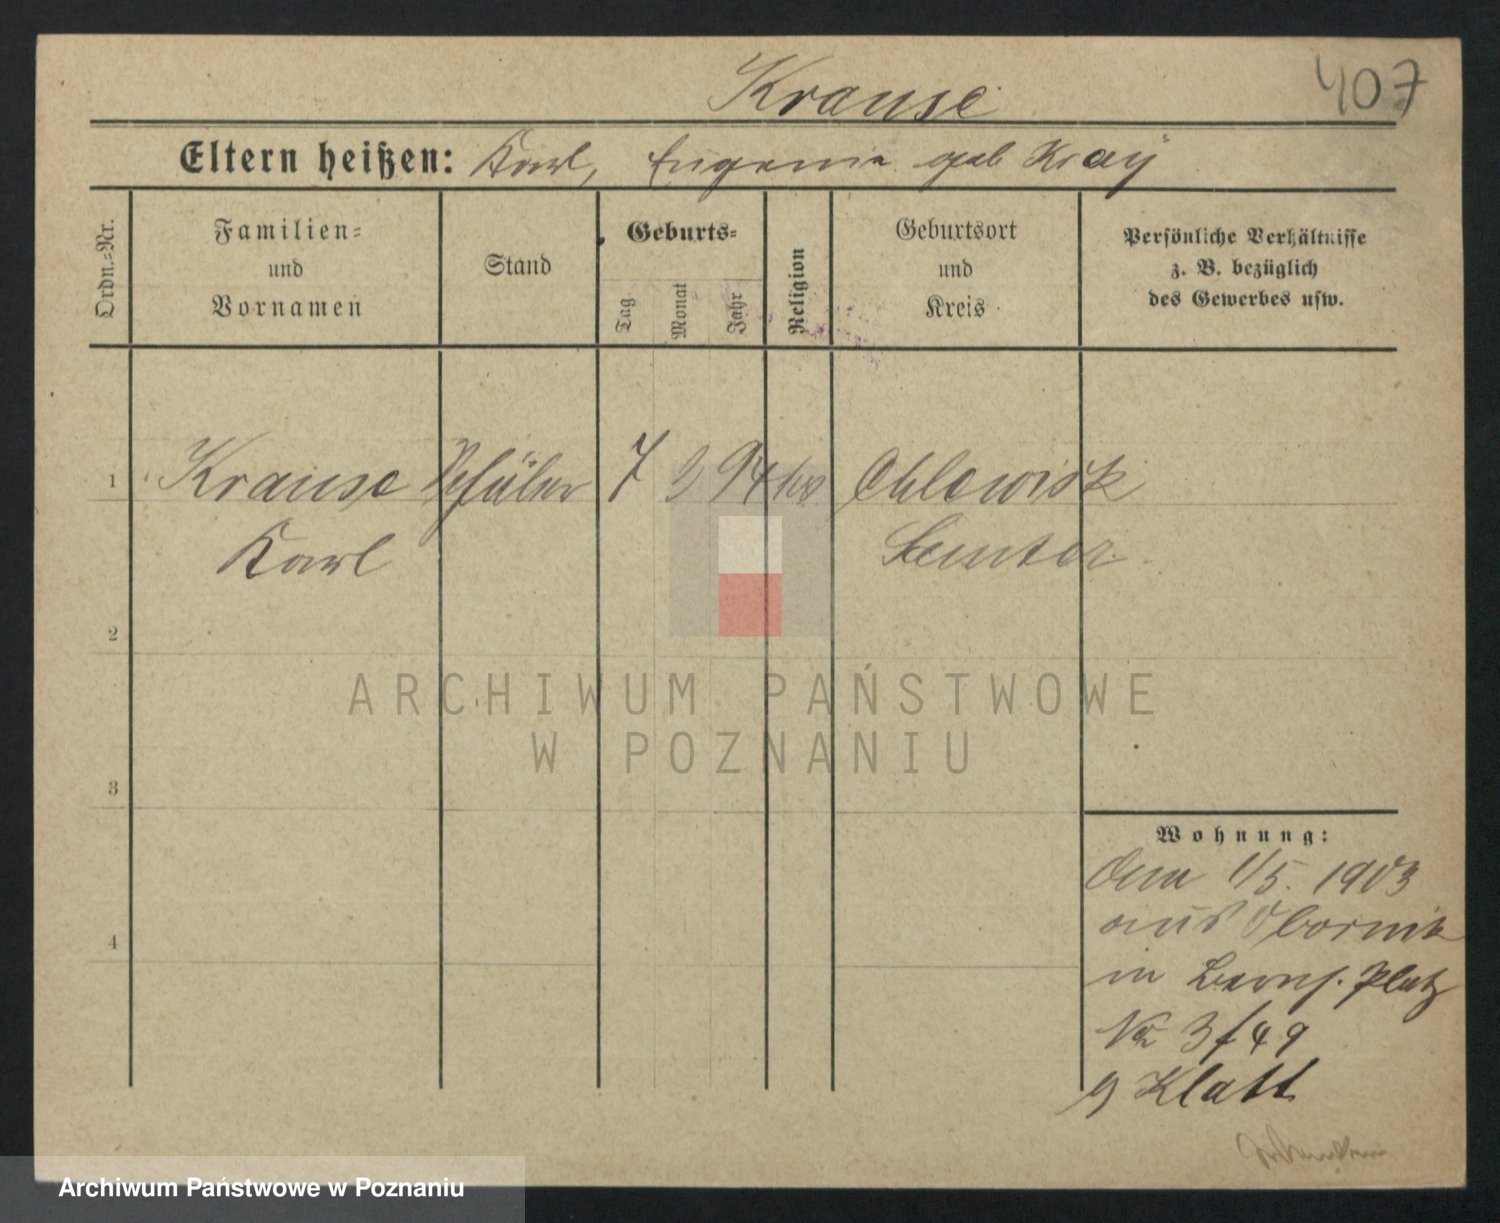 Krause 407
Eltern heißen: Karl, Eugenie geb Kray
Ordn.-Nr.
Familien-
und
Vornamen
Stand
Geburts-
Tag
Monat
Jahr
Religion
Geburtsort
und
Kreis
Persönliche Verhältnisse
z. B. bezüglich
des Gewerbes usw.
1 Krause Schüler 7 3 94 Chlewisk
Karl Samter
2
ARCHIWUM PAŃSTWOWE
W POZNANIU
3
Wohnung:
Den 1/5. 1903
aus Obornik
4
in Bernh. Platz
No 3
Klatt
Archiwum Państwowe w Poznaniu